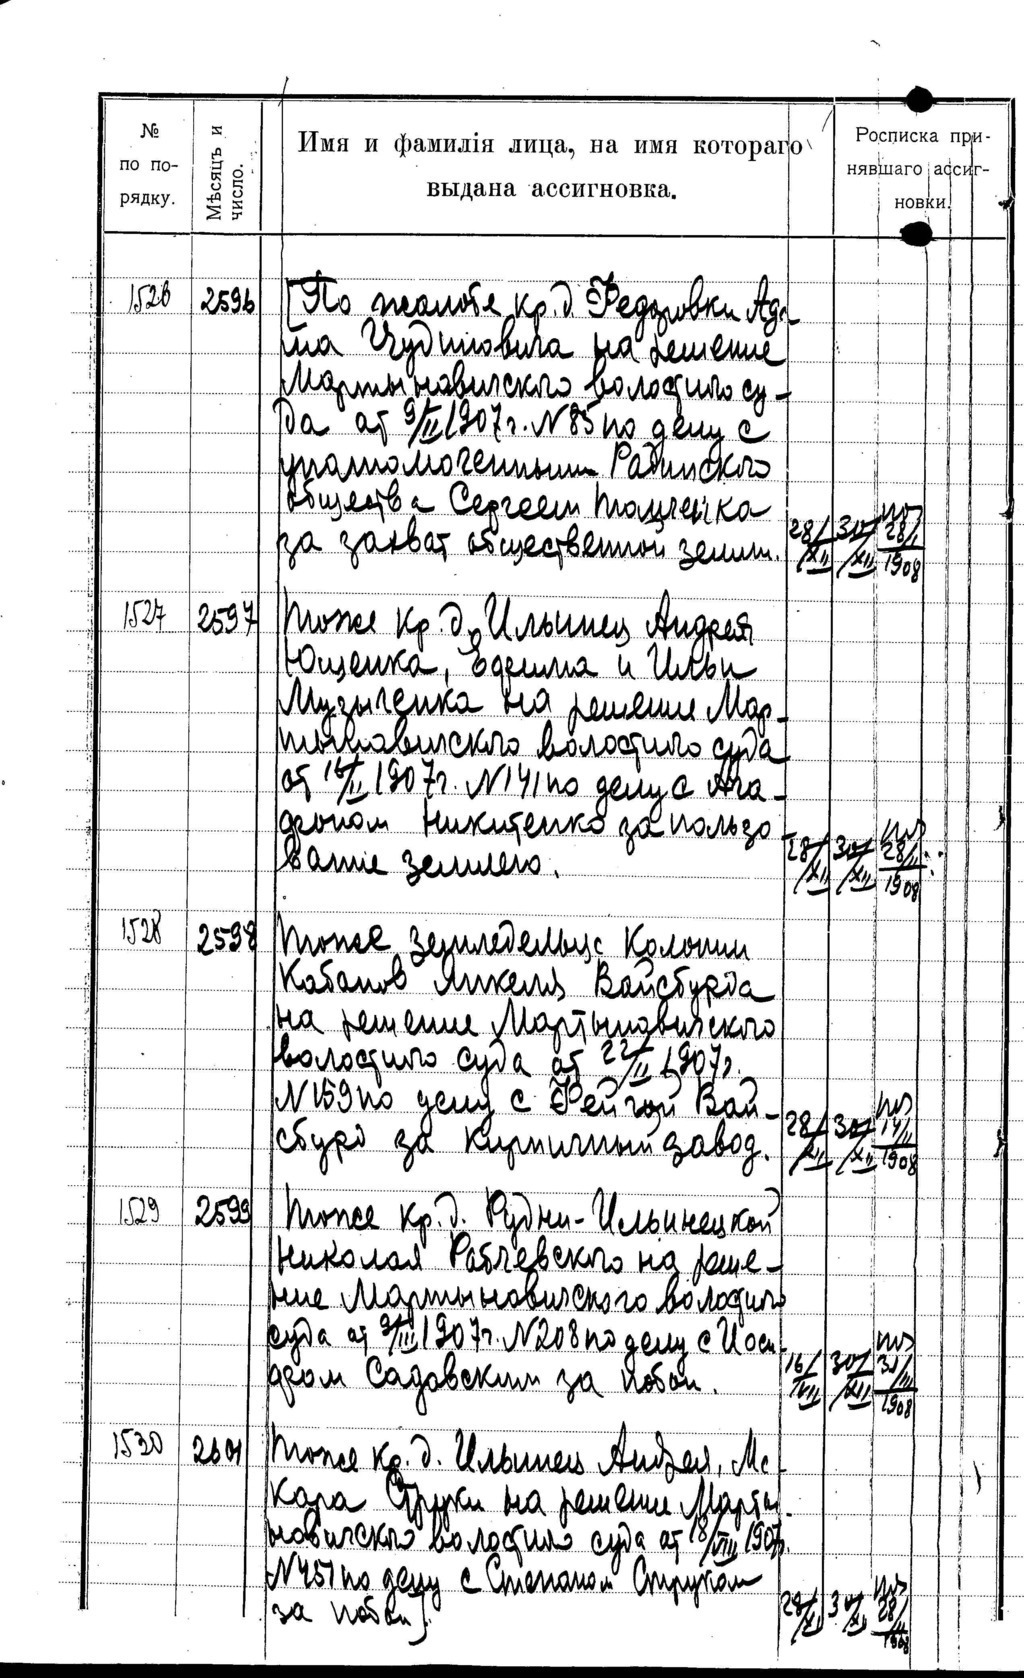 № по порядку.
Мѣсяцъ и число.
Имя и фамилія лица, на имя котораго
выдана ассигновка.
Росписка при-
нявшаго ассиг-
новки.
1526 2596 По жалобе кр. д. Федоровки Ада-
ма на решение
Мартыновичского волостного су-
да от 9/II 1907 г. N 85 по делу с
уполномоченным Радинского
общества Сергеем Томченка
за захват общественной земли. 28/XII 30/XII 28/I 1908
1527 2597 тоже кр. д. Ильинец Андрея
Ющенка, Ефима и Ильи
Музыченка на решение Мар-
тыновичского волостного суда
от 16/II 1907 г. N 141 по делу с Ага-
фоном Никитенко за пользо
вание землею. 28/XII 30/XII 28/II 1908
1528 2598 тоже земледельца Колонии
Кабанов Янкеля Вайсбурда
на решение Мартыновичского
волостного суда от 22/II 1907 г.
N 159 по делу с Фейгой Вай-
сбурд за кирпичный завод. 28/XII 30/XII 14/II 1908
1529 2599 тоже кр. д. Рудни-Ильинецкой
Николая Рабчевского на реше-
ние Мартыновичского волостного
суда от 9/III 1907 г. N 208 по делу с Иоси-
фом Садовским за побои. 16/VII 30/XII 31/III 1908
1530 2601 тоже кр. д. Ильинец Андрея, Ма-
кара Струки на решение Марты-
новичского волостного суда от 18/VIII 1907 г.
N 457 по делу с Степаном Струком
за побои). 28/XI 30/XI 28/II 1908